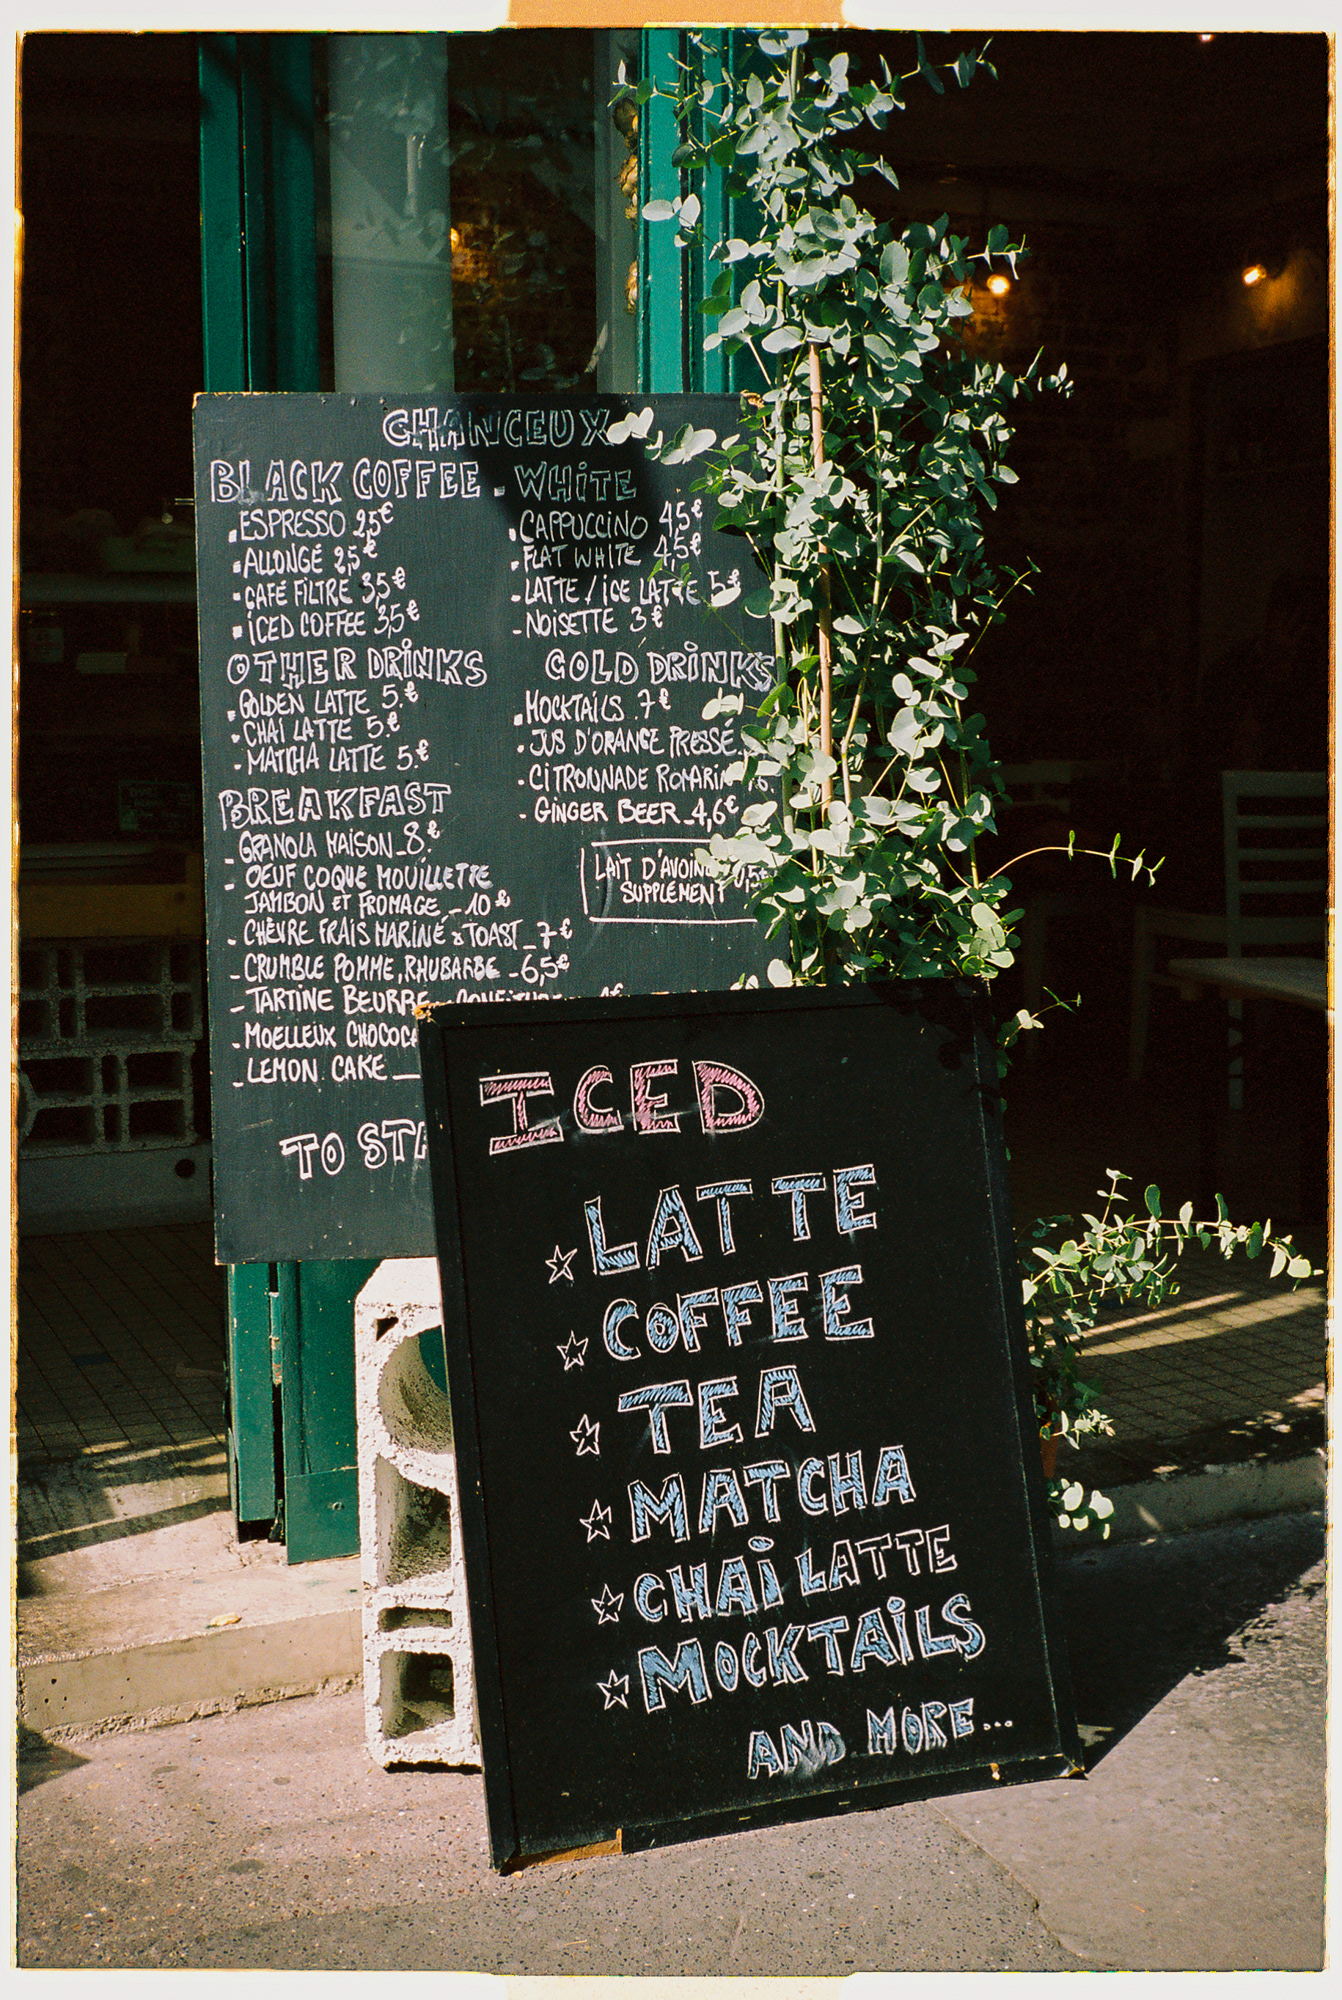 CHANCEUX
BLACK COFFEE - WHITE
. ESPRESSO 2,5€
. ALLONGÉ 2,5€
. CAFÉ FILTRE 3,5€
. ICED COFFEE 3,5€
. CAPPUCCINO 4,5€
. FLAT WHITE 4,5€
- LATTE / ICE LATTE 5€
- NOISETTE 3€
OTHER DRINKS
. GOLDEN LATTE 5.€
. CHAI LATTE 5.€
. MATCHA LATTE 5.€
COLD DRINKS
. MOCKTAILS .7€
. JUS D'ORANGE PRESSÉ
. CITRONNADE ROMARIN
. GINGER BEER_4,6€
LAIT D'AVOINE
SUPPLÉMENT
BREAKFAST
- GRANOLA MAISON_8.€
- OEUF COQUE MOUILLETTE
JAMBON ET FROMAGE_10€
- CHÈVRE FRAIS MARINÉ & TOAST_7€
- CRUMBLE POMME, RHUBARBE -6,5€
- TARTINE BEURRE
- MOELLEUX
- LEMON CAKE
TO
ICED
☆ LATTE
☆ COFFEE
☆ TEA
☆ MATCHA
☆ CHAI LATTE
☆ MOCKTAILS
AND MORE...